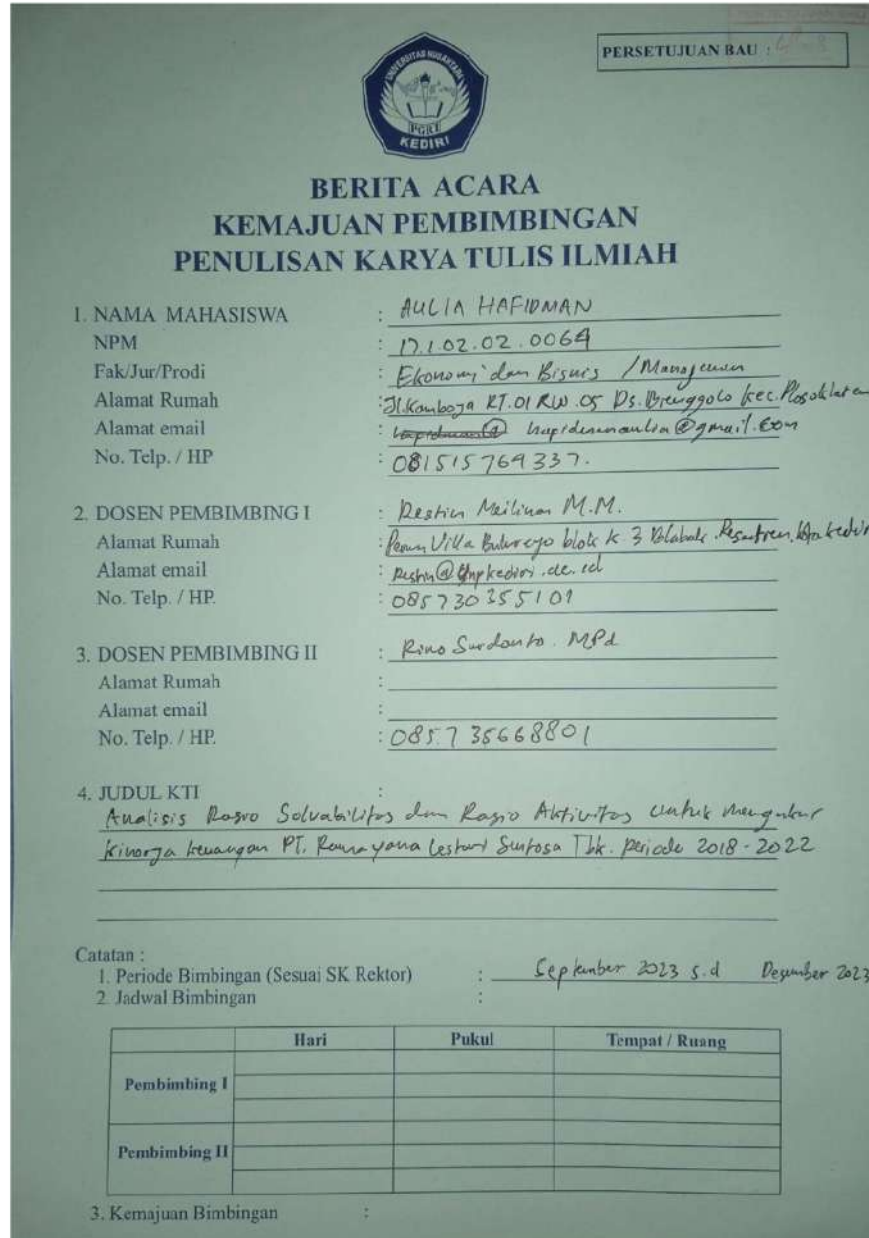 PERSETUJUAN BAU :
UNIVERSITAS NUSANTARA
PGRI
KEDIRI
BERITA ACARA
KEMAJUAN PEMBIMBINGAN
PENULISAN KARYA TULIS ILMIAH
1. NAMA MAHASISWA : AULIA HAFIDMAN
NPM : 17.1.02.02.0064
Fak/Jur/Prodi : Ekonomi dan Bisnis / Manajemen
Alamat Rumah : Jl. Kamboja RT.01 RW.05 Ds. Brenggolo Kec. Plosoklaten
Alamat email : @gmail.com
No. Telp. / HP : 081515764337.
2. DOSEN PEMBIMBING I : Restin Meilina M.M.
Alamat Rumah : Perum Villa blok K.3 Blabak. Pesantren, Kota Kediri
Alamat email : restin@unpkediri.ac.id
No. Telp. / HP. : 085730355101
3. DOSEN PEMBIMBING II : Rino Sardanto. MPd
Alamat Rumah :
Alamat email :
No. Telp. / HP. : 085.735668801
4. JUDUL KTI :
Analisis Rasio Solvabilitas dan Rasio Aktivitas untuk mengukur
kinerja keuangan PT. Ramayana Lestari Sentosa Tbk. periode 2018-2022
Catatan :
1. Periode Bimbingan (Sesuai SK Rektor) : September 2023 s.d Desember 2023
2. Jadwal Bimbingan :
Hari Pukul Tempat / Ruang
Pembimbing I
Pembimbing II
3. Kemajuan Bimbingan :